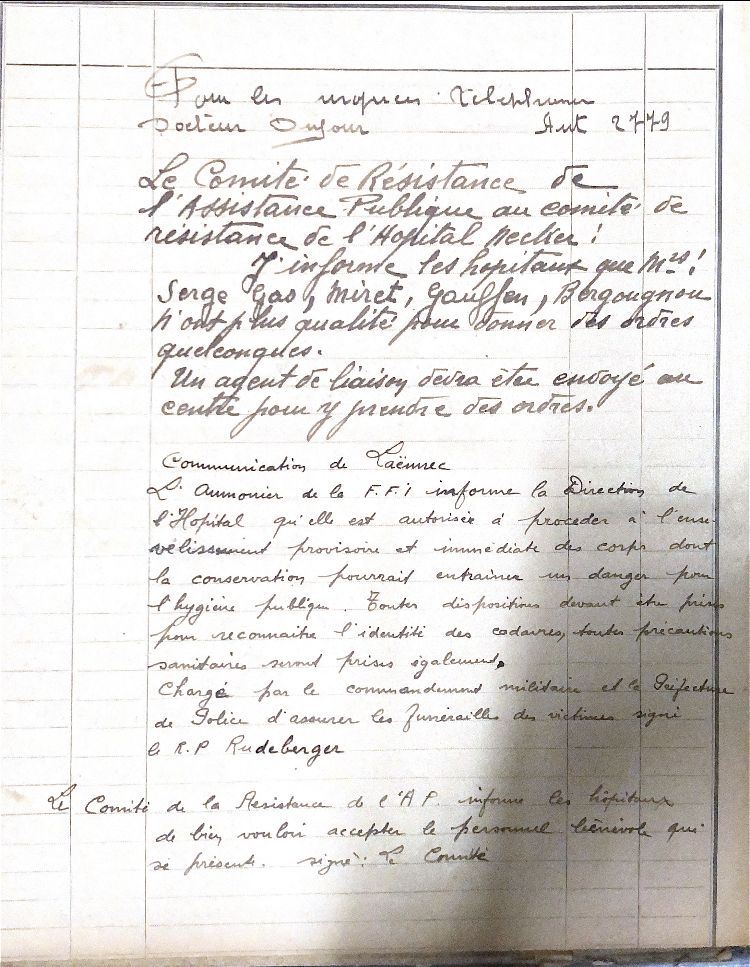 Pour les urgences téléphoner
Docteur Dufour Aut 2779
Le Comité de Résistance de
l'Assistance Publique au comité de
résistance de l'Hopital Necker!
J'informe les hopitaux que Mrs!
Serge Gas, Miret, Bergougnou
n'ont plus qualité pour donner des ordres
quelconques.
Un agent de liaison devra être envoyé au
centre pour y prendre des ordres.
Communication de Laënnec
L'Aumonier de la F.F.I informe la Direction de
l'Hopital qu'elle est autorisée à proceder à l'ense
velissement provisoire et immédiate des corps dont
la conservation pourrait entrainer un danger pour
l'hygiène publique. Toutes dispositions devant être prises
pour reconnaitre l'identité des cadavres, toutes précautions
sanitaires seront prises également.
Chargé par le commandement militaire et la Préfecture
de Police d'assurer les funérailles des victimes signé
le R.P Rudeberger
Le Comité de la Résistance de l'A P. informe les hôpitaux
de bien vouloir accepter le personnel bénévole qui
se présente. signé: le Comité